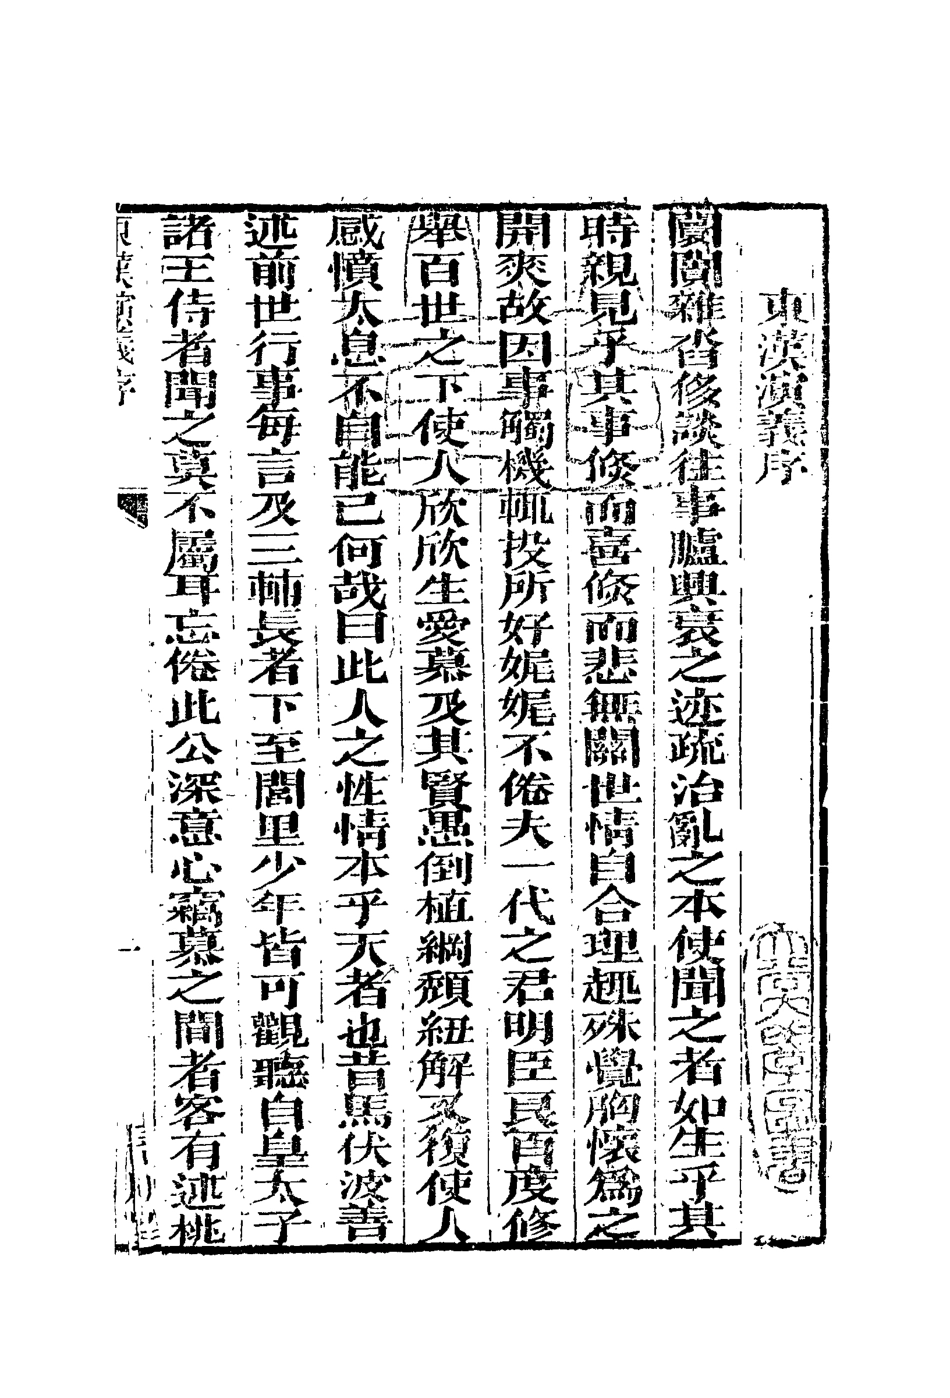 東漢演義序
闤闠雜沓侈談往事臚興衰之迹疏治亂之本使聞之者如生乎其
時親見乎其事倐而喜倐而悲無關世情自合理趣殊覺胸懷爲之
開爽故因事觸機輒投所好娓娓不倦夫一代之君明臣良百度修
舉百世之下使人欣欣生愛慕及其賢愚倒植綱頹紐解又復使人
感憤太息不自能已何哉曰此人之性情本乎天者也昔馬伏波善
述前世行事每言及三輔長者下至閭里少年皆可觀聽自皇太子
諸王侍者聞之莫不屬耳忘倦此公深意心竊慕之間者客有述桃
東漢演義序
一